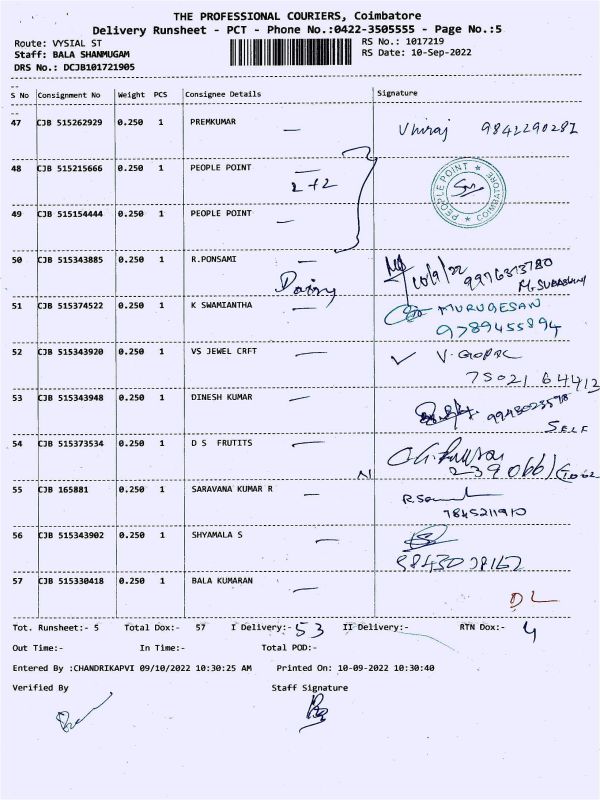 THE PROFESSIONAL COURIERS, Coimbatore
Delivery Runsheet - PCT - Phone No.:0422-3505555 - Page No.:5
Route: VYSIAL ST RS No.: 1017219
Staff: BALA SHANMUGAM RS Date: 10-Sep-2022
DRS No.: DCJB101721905
S No Consignment No Weight PCS Consignee Details Signature
47 CJB 515262929 0.250 1 PREMKUMAR Vhiraj 9842290287
48 CJB 515215666 0.250 1 PEOPLE POINT 2+2 PEOPLE POINT COIMBATORE
49 CJB 515154444 0.250 1 PEOPLE POINT
50 CJB 515343885 0.250 1 R.PONSAMI 10/9/22 9976313780
51 CJB 515374522 0.250 1 K SWAMIANTHA MURUGESAN
9789455894
52 CJB 515343920 0.250 1 VS JEWEL CRFT ✓ V. GOPAL
75021 64413
53 CJB 515343948 0.250 1 DINESH KUMAR
SELF
54 CJB 515373534 0.250 1 D S FRUTITS N
55 CJB 165881 0.250 1 SARAVANA KUMAR R
7845211910
56 CJB 515343902 0.250 1 SHYAMALA S
57 CJB 515330418 0.250 1 BALA KUMARAN DL
Tot. Runsheet:- 5 Total Dox:- 57 I Delivery:- 53 II Delivery:- RTN Dox:- 4
Out Time:- In Time:- Total POD:-
Entered By :CHANDRIKAPVI 09/10/2022 10:30:25 AM Printed On: 10-09-2022 10:30:40
Verified By Staff Signature